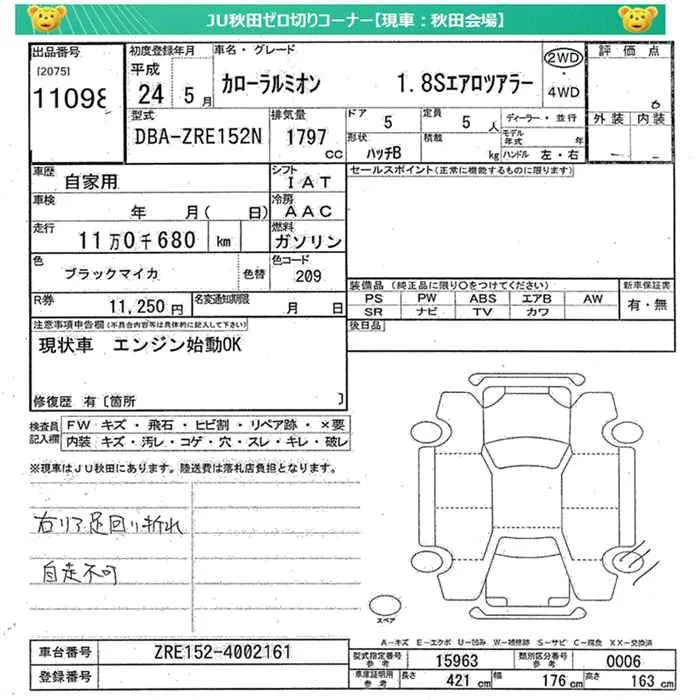 JU秋田ゼロ切りコーナー【現車：秋田会場】
出品番号 初度登録年月 車名・グレード 2WD ・ 4WD 評価点
[2075] 11098 平成 24 5月 カローラルミオン 1.8Sエアロツアラー 6
型式 排気量 ドア 5 定員 5人 ディーラー・並行 外装 内装
DBA-ZRE152N 1797cc 形状 ハッチB 積載 kg モデル年式 年 ハンドル 左・右 - -
車歴 自家用 シフト IAT セールスポイント(正常に機能するものに限ります)
車検 年 月( 日) 冷房 AAC
走行 11万0千680 km 燃料 ガソリン
色 ブラックマイカ 色替 色コード 209
装備品(純正品に限り〇をつけてください) 新車保証書
R券 11,250円 名変通知期限 月 日 PS PW ABS エアB AW 有・無
SR ナビ TV カワ
注意事項申告欄(不具合内容等は具体的に記入して下さい) 後日品
現状車 エンジン始動OK
修復歴 有[箇所 ]
検査員記入欄 FW キズ・飛石・ヒビ割・リペア跡・×要
内装 キズ・汚レ・コゲ・穴・スレ・キレ・破レ
※現車はJU秋田にあります。陸送費は落札店負担となります。
右リア足回り折れ
自走不可
スペア
A-キズ E-エクボ U-凹み W-補修跡 S-サビ C-腐食 XX-交換済
車台番号 ZRE152-4002161 型式指定番号 参考 15963 類別区分番号 参考 0006
登録番号 車庫証明用 参考 長さ 421cm 幅 176cm 高さ 163cm